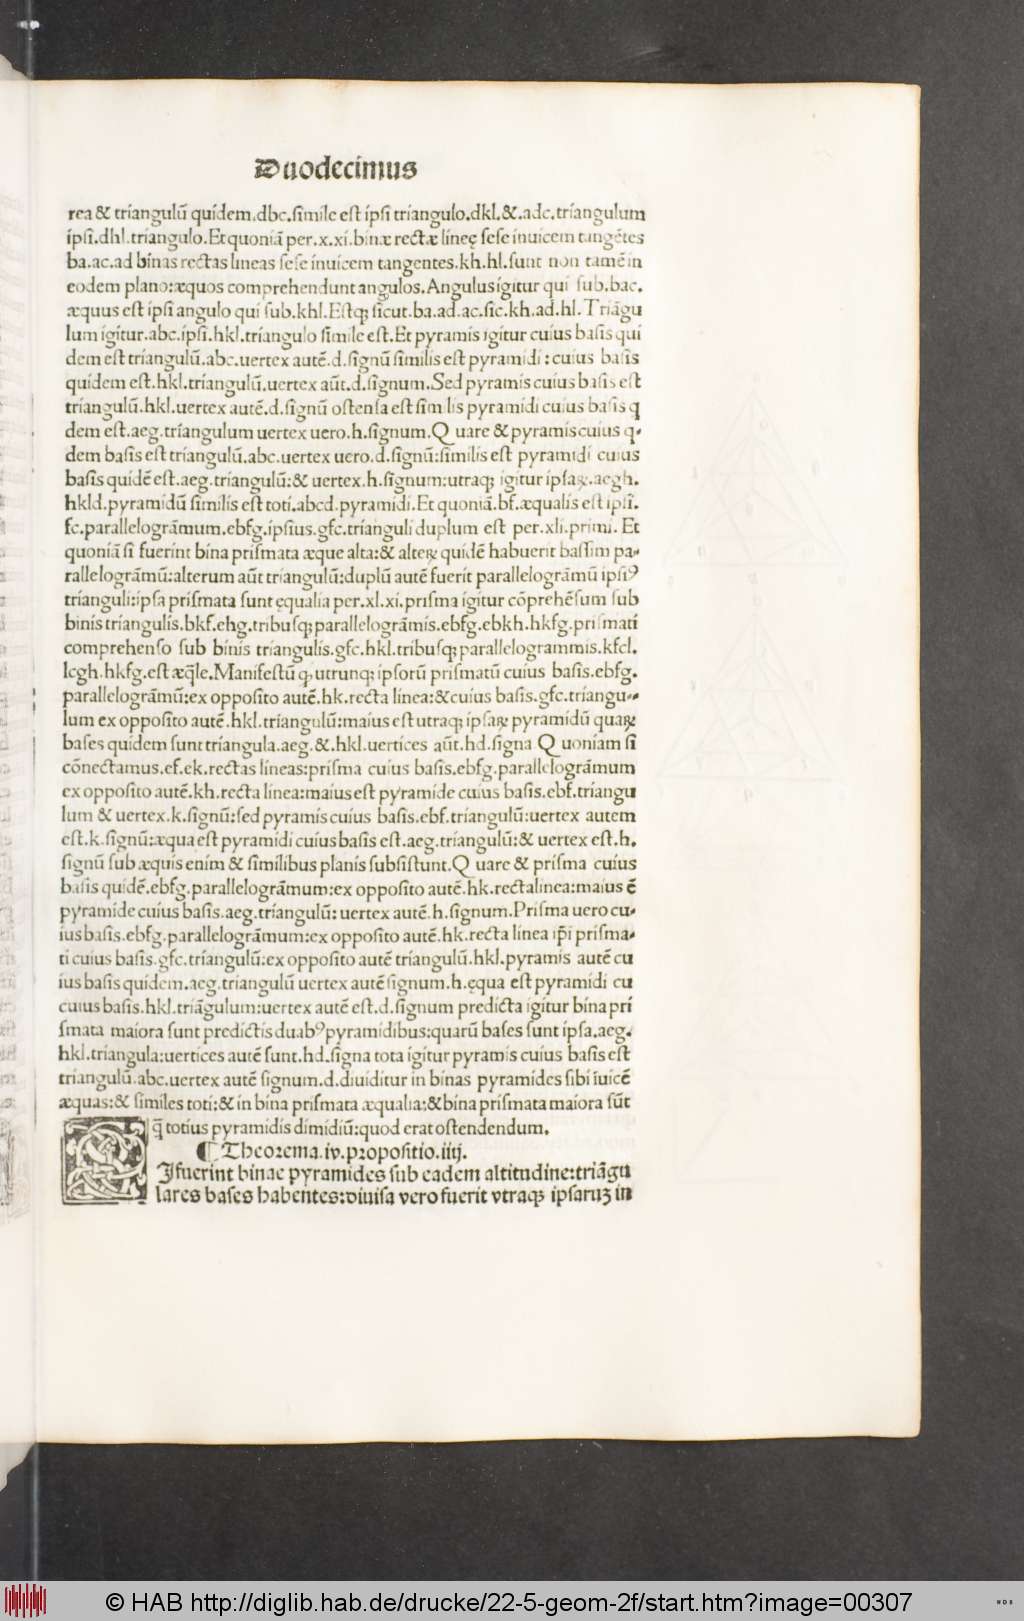 Duodecimus
rea & triangulū quidem.dbc.simile est ipsi triangulo.dkl.&.adc.triangulum
ipsi.dhl.triangulo.Et quoniā per.x.xi.binæ rectæ lineę sese inuicem tangētes
ba.ac.ad binas rectas lineas sese inuicem tangentes.kh.hl.sunt non tamē in
eodem plano:æquos comprehendunt angulos.Angulus igitur qui sub.bac.
æquus est ipsi angulo qui sub.khl.Estqꝫ sicut.ba.ad.ac.sic.kh.ad.hl.Triāgu
lum igitur.abc.ipsi.hkl.triangulo simile est.Et pyramis igitur cuius basis qui
dem est triangulū.abc.uertex autē.d.signū similis est pyramidi:cuius basis
quidem est.hkl.triangulū.uertex aūt.d.signum.Sed pyramis cuius basis est
triangulū.hkl.uertex autē.d.signū ostensa est sim lis pyramidi cuius basis q
dem est.aeg.triangulum uertex uero.h.signum.Q uare & pyramis cuius q-
dem basis est triangulū.abc.uertex uero.d.signū:similis est pyramidi cuius
basis quidē est.aeg.triangulū:& uertex.h.signum:utraqꝫ igitur ipsaꝝ.aegh.
hkld.pyramidū similis est toti.abcd.pyramidi.Et quoniā.bf.æqualis est ipsi.
fc.parallelogrāmum.ebfg.ipsius.gfc.trianguli duplum est per.xli.primi. Et
quoniā si fuerint bina prismata æque alta:& alteꝝ quidē habuerit bassim pa-
rallelogrāmū:alterum aūt triangulū:duplū autē fuerit parallelogrāmū ipsiꝰ
trianguli:ipsa prismata sunt ęqualia per.xl.xi.prisma igitur cōprehēsum sub
binis triangulis.bkf.ehg.tribusqꝫ parallelogrāmis.ebfg.ebkh.hkfg.prismati
comprehenso sub binis triangulis.gfc.hkl.tribusqꝫ parallelogrammis.kfcl.
lcgh.hkfg.est æq̄le.Manifestū qꝫ utrunqꝫ ipsorū prismatū cuius basis.ebfg.
parallelogrāmū:ex opposito autē.hk.recta linea:& cuius basis.gfc.triangu-
lum ex opposito autē.hkl.triangulū:maius est utraqꝫ ipsaꝝ pyramidū quaꝝ
bases quidem sunt triangula.aeg.&.hkl.uertices aūt.hd.signa Q uoniam si
cōnectamus.ef.ek.rectas lineas:prisma cuius basis.ebfg.parallelogrāmum
ex opposito autē.kh.recta linea:maius est pyramide cuius basis.ebf.triangu
lum & uertex.k.signū:sed pyramis cuius basis.ebf.triangulū:uertex autem
est.k.signū:æqua est pyramidi cuius basis est.aeg.triangulū:& uertex est.h.
signū sub æquis enim & similibus planis subsistunt.Q uare & prisma cuius
basis quidē.ebfg.parallelogrāmum:ex opposito autē.hk.recta linea:maius ē
pyramide cuius basis.aeg.triangulū: uertex autē.h.signum.Prisma uero cu-
ius basis.ebfg.parallelogrāmum:ex opposito autē.hk.recta linea ip̄i prisma-
ti cuius basis.gfc.triangulū:ex opposito autē triangulū.hkl.pyramis autē cu
ius basis quidem.aeg.triangulū uertex autē signum.h.ęqua est pyramidi cu
cuius basis.hkl.triāgulum:uertex autē est.d.signum predicta igitur bina pri
smata maiora sunt predictis duabꝰ pyramidibus:quarū bases sunt ipsa.aeg.
hkl.triangula:uertices autē sunt.hd.signa tota igitur pyramis cuius basis est
triangulū.abc.uertex autē signum.d.diuiditur in binas pyramides sibi īuicē
æquas:& similes toti:& in bina prismata æqualia:& bina prismata maiora sūt
q̄ totius pyramidis dimidiū:quod erat ostendendum.
¶ Theorema.iv.propositio.iiij.
SIfuerint binae pyramides sub eadem altitudine:triāgu
lares bases habentes:diuisa vero fuerit vtraqꝫ ipsaruꝫ in
© HAB http://diglib.hab.de/drucke/22-5-geom-2f/start.htm?image=00307